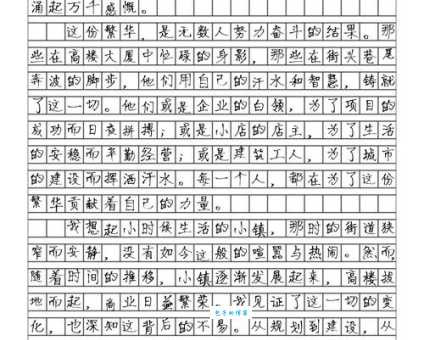 涌起万千感慨。
这份繁华，是无数人努力奋斗的结果。那
些在高楼大厦中忙碌的身影，那些在街头巷尾
奔波的脚步，他们用自己的汗水和智慧，铸就
了这一切。他们或是企业的白领，为了项目的
成功而日夜拼搏；或是小店的店主，为了生活
的安稳而辛勤经营；或是建筑工人，为了城市
的建设而挥洒汗水。每一个人，都在为了这份
繁华贡献着自己的力量。
我想起小时候生活的小镇，那时的街道狭
窄而安静，没有如今这般的喧嚣与热闹。然而，
随着时间的推移，小镇逐渐发展起来，高楼拔
地而起，商业日益繁荣。我见证了这一切的变
化，也深知这背后的不易。从规划到建设，从